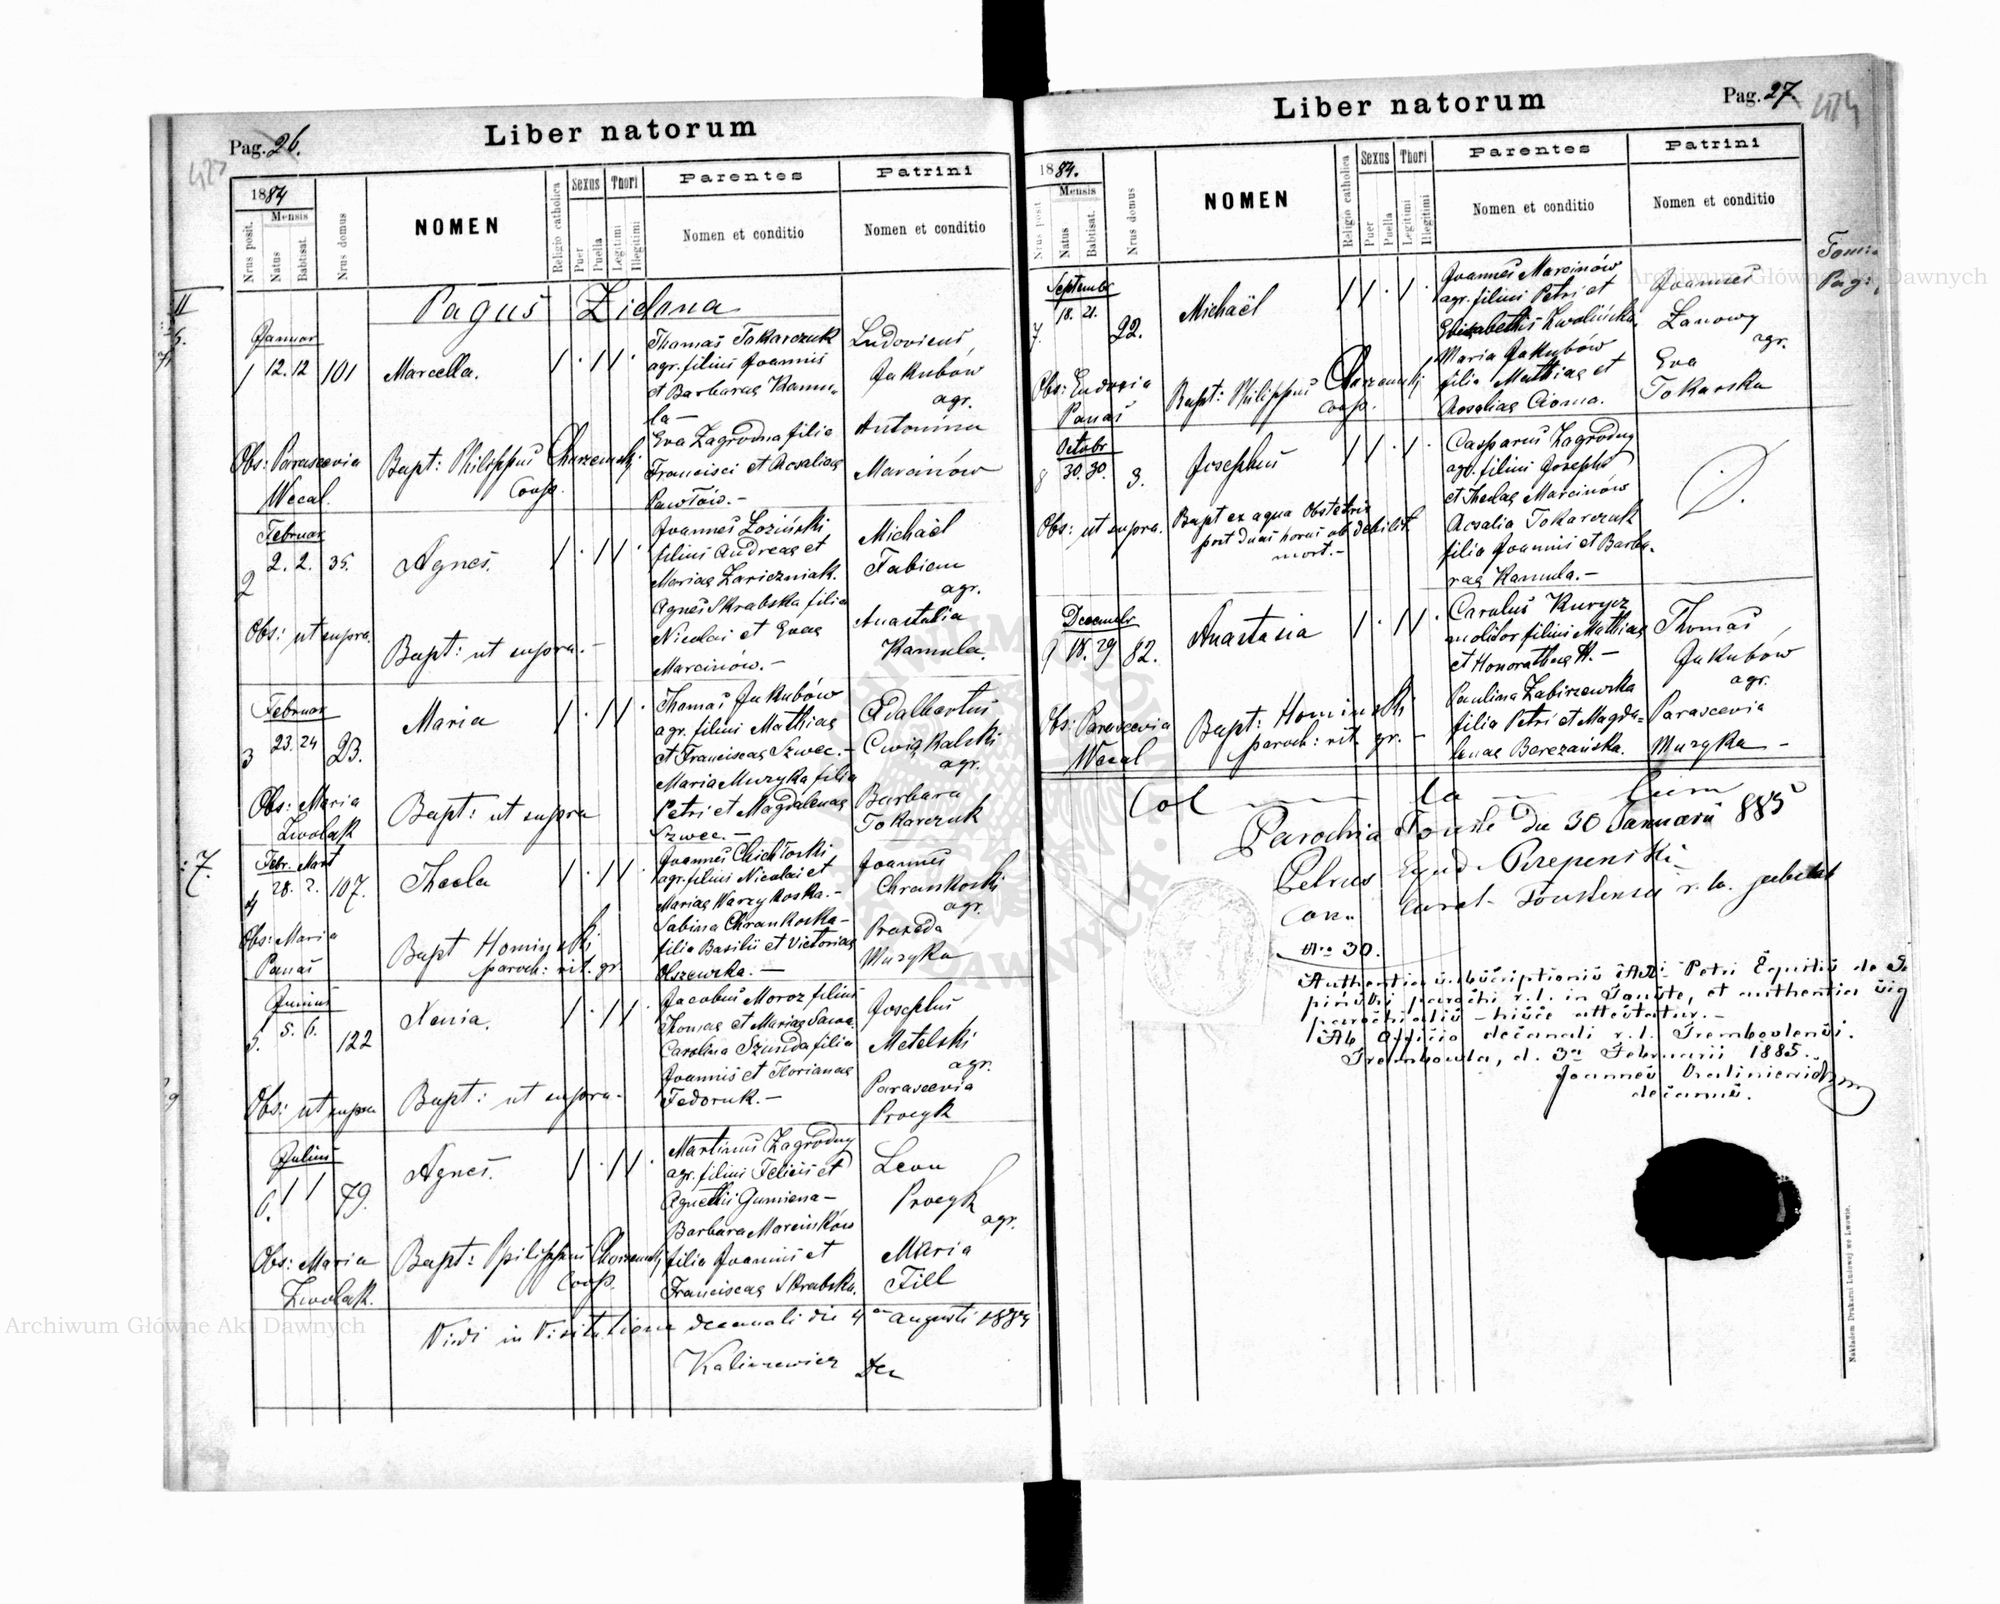 Liber natorum
Pag. 26.
427
1884
Mensis
Nrus posit.
Natus
Babtisat.
Nrus domus
NOMEN
Religio catholica
Sexus
Puer
Puella
Thori
Legitimi
Illegitimi
Parentes
Nomen et conditio
Patrini
Nomen et conditio
Pagus Zielona
Januar
1 12. 12 101 Marcella.
Thomas Tokarczuk
agr. filius Joannis
et Barbarae Kamu-
la —
Eva Zagrodna filia
Francisci et Rosaliae
Pawłów. –
Ludovicus
Jakubów
agr.
Antonina
Marcinów
Obs: Parascevia
Wecal.
Bapt: Philippus Chorzemski
Coop.
Februar
2 2. 2. 35. Agnes.
Joannes Łoziński
filius Andreae et
Mariae Zariczniak.
Agnes Skrabska filia
Nicolai et Evae
Marcinów. –
Michaël
Fabien
agr.
Anastasia
Kamula.
Obs: ut supra.
Bapt: ut supra. –
Februar
3 23. 24 23. Maria
Thomas Jakubów
agr. filius Mathiae
et Franciscae Szwec. –
Maria Muzyka filia
Petri et Magdalenae
Szwec. –
Adalbertus
Cwiąkalski
agr.
Barbara
Tokarczuk
Obs: Maria
Zwolak
Bapt: ut supra
Febr. Mart
4 28. 2. 107. Thecla
Joannes
agr. filius Nicolai et
Mariae
Sabina Chrankoska –
filia Basilii et Victoriae
Olszewska. —
Joannes
Chrankoski
agr.
Praxeda
Muzyka
Obs: Maria
Panas
Bapt Hominski
paroch: rit. gr.
Junius
5. 5. 6. 122 Xenia.
Jacobus Moroz filius
Thomae et Mariae
Carolina Szunda filia
Joannis et Florianae
Fedoruk. –
Josephus
Metelski
agr.
Parascevia
Procyk
Obs: ut supra
Bapt: ut supra –
Julius
6. 1 1 79. Agnes.
Martinus Zagrodny
agr. filius Felicis et
Agnethis Gumiena –
Barbara Marcinków
filia Joannis et
Franciscae Skrabska.
Leon
Procyk
agr.
Maria
Till
Obs: Maria
Zwolak.
Bapt: Philippus Chorzemski
Coop.
Vidi in Visitatione decanali die 4 Augusti 1884
Kalinewicz Dec
Liber natorum
Pag. 27.
1884.
Mensis
Nrus posit.
Natus
Babtisat.
Nrus domus
NOMEN
Religio catholica
Sexus
Puer
Puella
Thori
Legitimi
Illegitimi
Parentes
Nomen et conditio
Patrini
Nomen et conditio
Tom:
Pag:
Septembr
7. 18. 21. 22. Michaël
Joannes Marcinów
agr. filius Petri et
Elisabethis Zwolińska
Maria Jakubów
filia Mathiae et
Rosaliae Cioma.
Joannes
Lanowy
agr.
Eva
Tokarska
Obs: Eudoxia
Panas
Bapt: Philippus Chorzemski
coop.
Octobr
8 30. 30. 3. Josephus
Casparus Zagrodny
agr. filius Josephi
et Theclae Marcinów
Rosalia Tokarczuk
filia Joannis et Barba-
rae Kamula. –
Obs: ut supra.
Bapt ex aqua Obstetrix
post duas horas ob debilit.
mort. –
Decembr
9 18. 29 82. Anastasia
Carolus Kurycz
molitor filius Mathiae
et Honorathae –
Paulina Zabirzewska
filia Petri et Magda-
lenae Berezańska.
Thomas
Jakubów
agr.
Parascevia
Muzyka –
Obs: Parascevia
Wecal
Bapt: Hominski
paroch: rit. gr. –
Col la tum
Parochia Touste die 30 Januarii 885
Petrus
Con.. Curat.
Nro 30.
parochialis – hisce attestatur. –
Ab officio decanali r. l. Trembovlensi.
Trembowla, d. 3a Februarii 1885.
Joannes
decanus.
Nakładem Drukarni Ludowej we Lwowie.
Archiwum Główne Akt Dawnych
Archiwum Główne Akt Dawnych